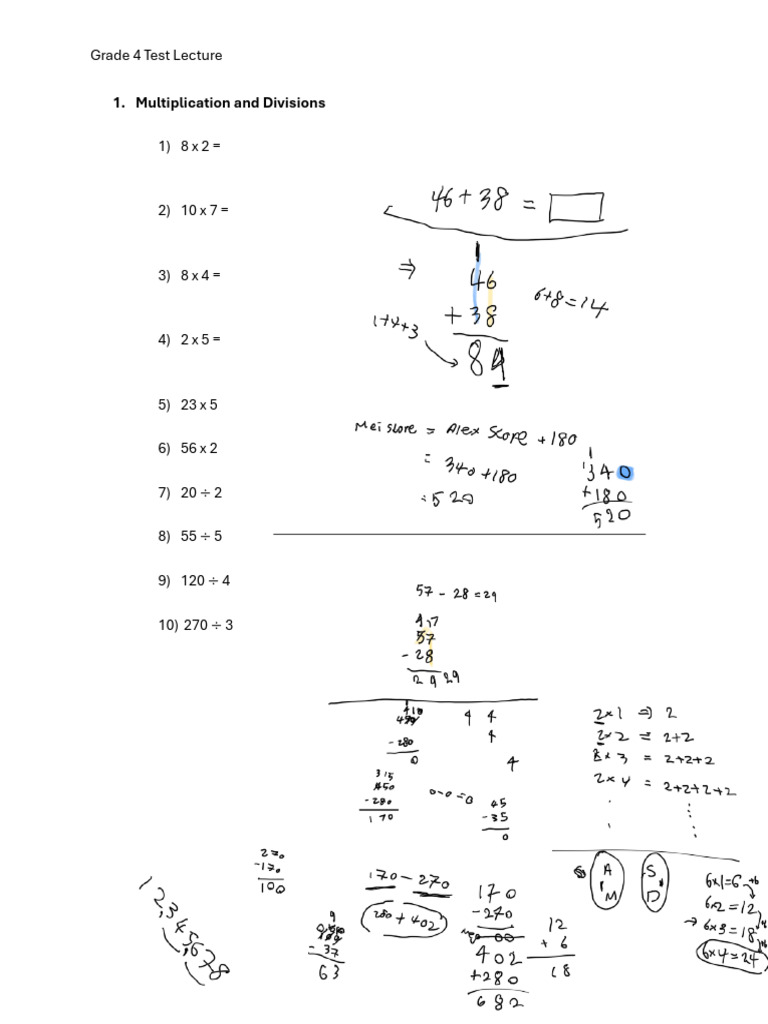 Grade 4 Test Lecture
1. Multiplication and Divisions
1) 8 x 2 =
2) 10 x 7 =
3) 8 x 4 =
4) 2 x 5 =
5) 23 x 5
6) 56 x 2
7) 20 ÷ 2
8) 55 ÷ 5
9) 120 ÷ 4
10) 270 ÷ 3
46 + 38 =
⇒
1
46
+ 38
84
6+8=14
1+4+3
Mei score = Alex Score + 180
= 340 + 180
= 520
1
340
+180
520
57 - 28 = 29
57
- 28
29 29
4 4
4
4
- 280
0
3 15
450
- 280
170
0-0=0
45
- 35
0
2x1 ⇒ 2
2x2 = 2+2
2x3 = 2+2+2
2x4 = 2+2+2+2
A
M
S
D
6x1=6 +6
6x2=12
→ 6x3=18
6x4=24
270
-170
100
170 - 270
280 + 402
170
- 270
402
+280
682
12
+ 6
18
9
- 37
63
12,345,678